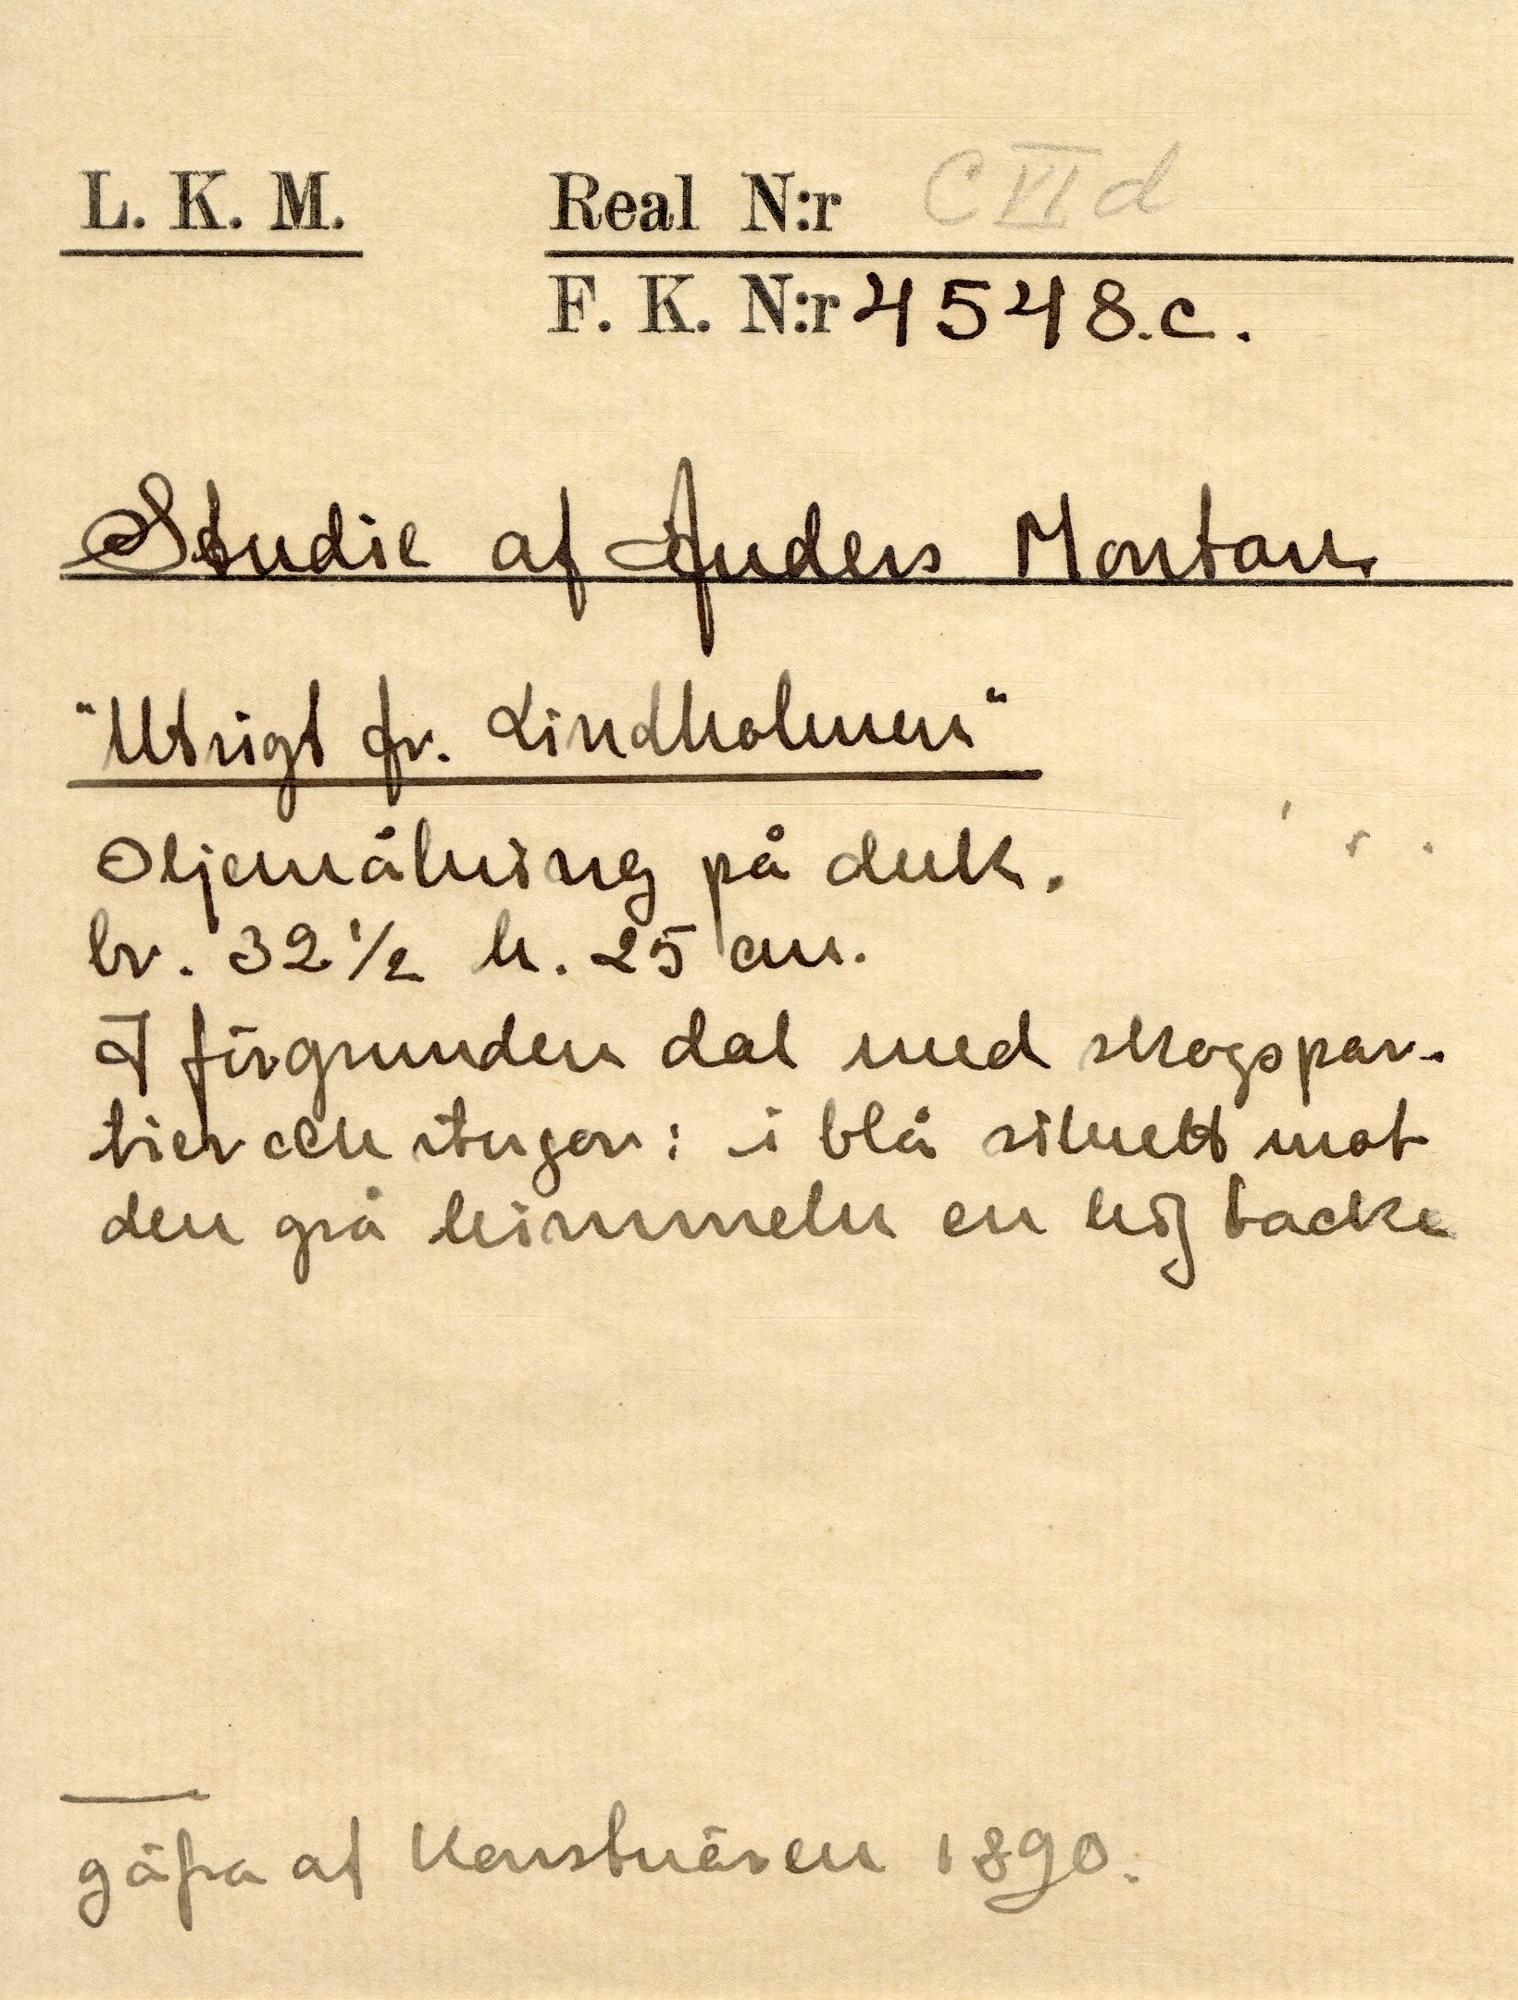 L. K. M. Real N:r C VI d
F. K. N:r 4548.c.
Studie af Anders Montan.
"Utsigt fr. Lindholmen"
Oljemålning på duk.
br. 32 1/2 h. 25 cm.
I förgrunden dal med skogspar-
tier och stugor: i blå siluett mot
den grå himmeln en höj backe
gåfva af Konstnären 1890.